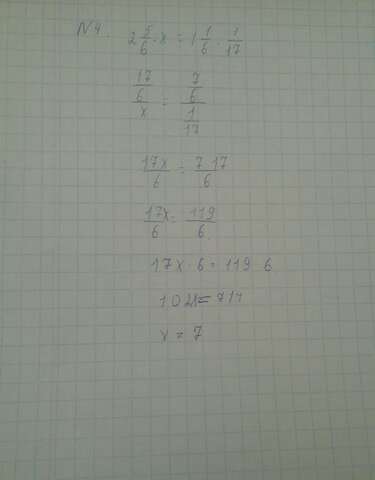 N4. 2 5/6 · x = 1 1/6 · 1/17
17/6 / x = 7/6 / 1/17
17x/6 = 7·17/6
17x/6 = 119/6
17x · 6 = 119 · 6
102x = 714
x = 7